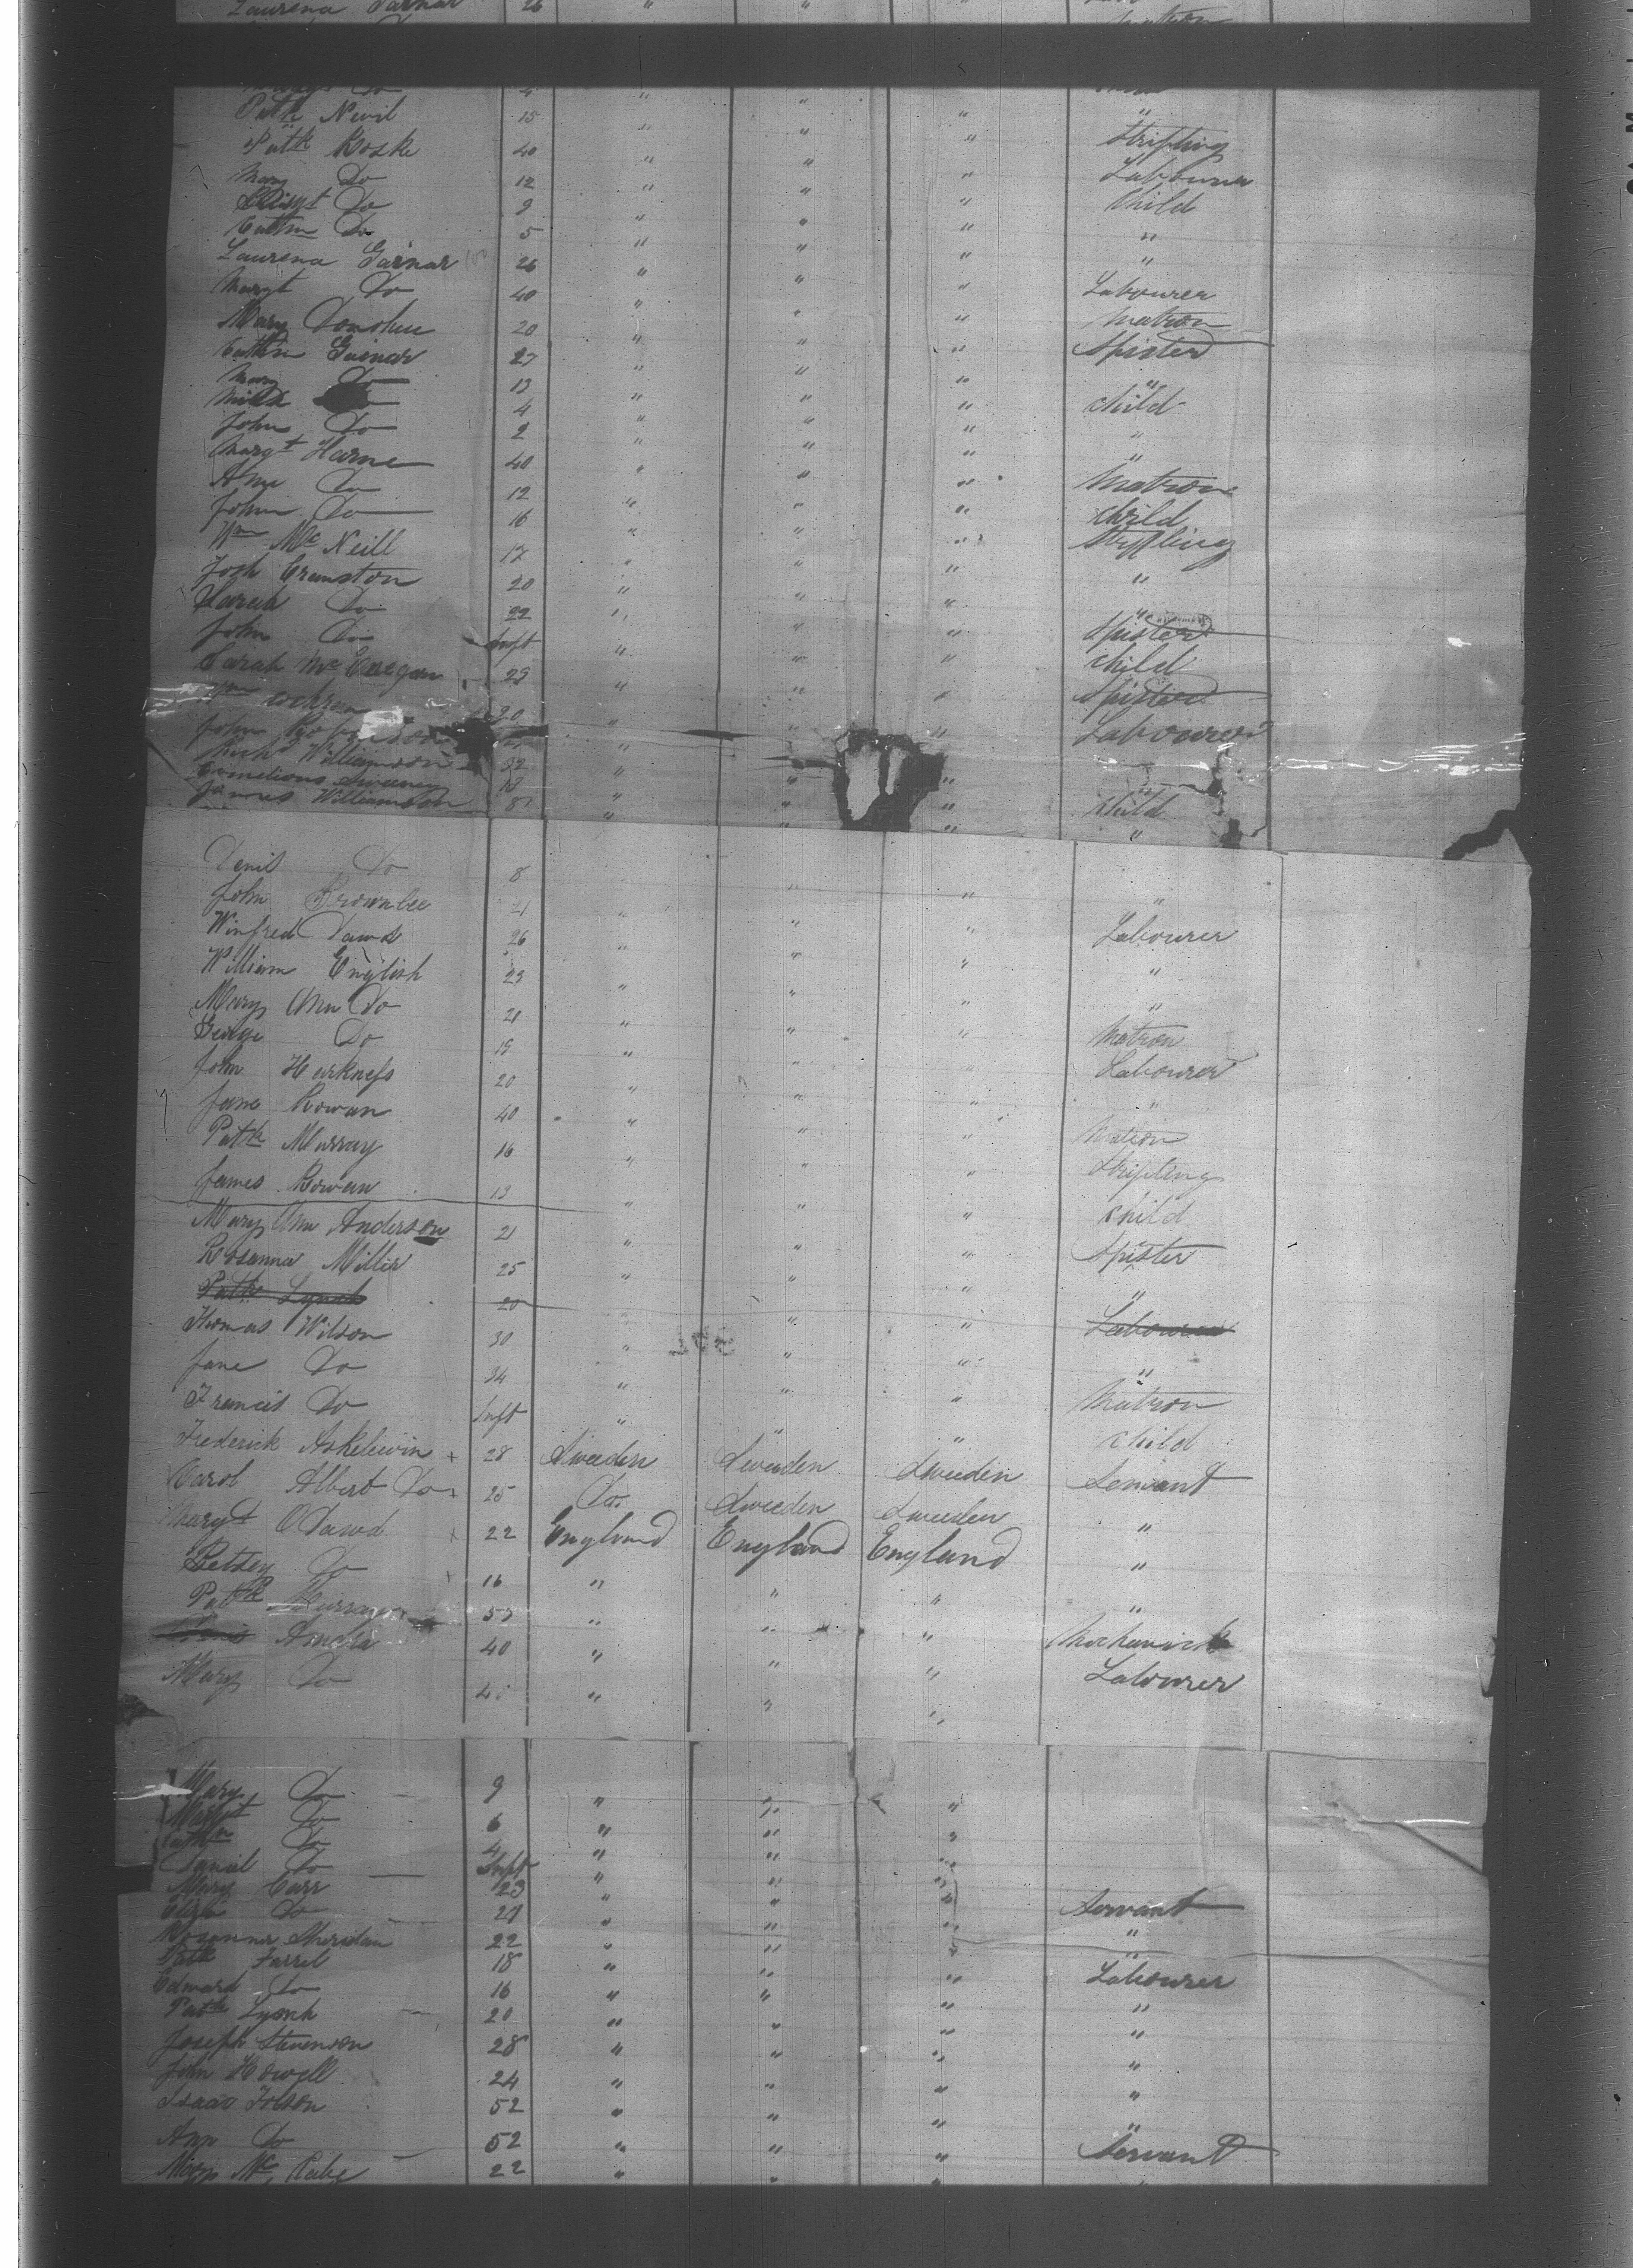 Laurena Garnar 26 " "
Do 4 " "
Patk Nevil 15 " " " "
Patk Roske 40 " " " Stripling
Mary Do 12 " " " Labourer
Do 9 " " " Child
Cathn Do 5 " " " "
Laurena Garnar 26 " " " "
Margt Do 40 " " " Labourer
Mary Donohue 20 " " " Matron
Cathn Gainar 27 " " " Spister
Mary Do 13 " " " "
4 " " " Child
John Do 2 " " " "
Margt Harne 40 " " " "
Ann Do 12 " " " Matron
John Do 16 " " " Child
Wm Mc Neill 17 " " " Stripling
Josh Cranston 20 " " " "
Sarah Do 22 " " " "
John Do Inft " " " Spister
Sarah Mc 23 " " " Child
Wm Cochran 20 " " " Spister
John Robinson " " Labourer
Richd Williamson 32 " " "
Cornelious Sweeney 13 " " "
James Williamson 8 " " " Child
"
Denis Do 8 " " "
John Brownlee 21 " " " "
Winfred Dawd 26 " " " Labourer
William English 23 " " " "
Mary Ann Do 21 " " " "
George Do 19 " " " Matron
John Harkness 20 " " " Labourer
Jane Rowan 40 " " " "
Patk Murray 16 " " " Matron
James Rowan 13 " " " Stripling
Mary Ann Anderson 21 " " " Child
Rosanna Miller 25 " " " Spister
Patk Lynch 20 " " " "
Thomas Wilson 30 " " " Labourer
Jane Do 34 " " " "
Francis Do Inft " " " Matron
Child
Frederick + 28 Sweeden Sweeden Sweeden Servant
Carol Albert Do + 25 Do. Sweeden Sweeden "
Margt ODawd + 22 England England England "
Betsey Do + 16 " " " "
Patk Murray 57 " " " Mechanick
40 " " " Labourer
Mary Do 40 " " "
Mary Do 9 " " "
Margt Do 6 " " "
Cathn Do 4 " " "
Daniel Do Inft " " "
Mary Carr 23 " " " Servant
Eliza Do 21 " " " "
Rosanna Sheridan 22 " " " "
Patk Farrel 18 " " " Labourer
Edward Do 16 " " " "
Patk Lynch 20 " " " "
Joseph Stevenson 28 " " " "
John Howell 24 " " " "
Isaac 52 " " " "
Ann Do 52 " " " Servant
Mary Mc Cabe 22 " " " "